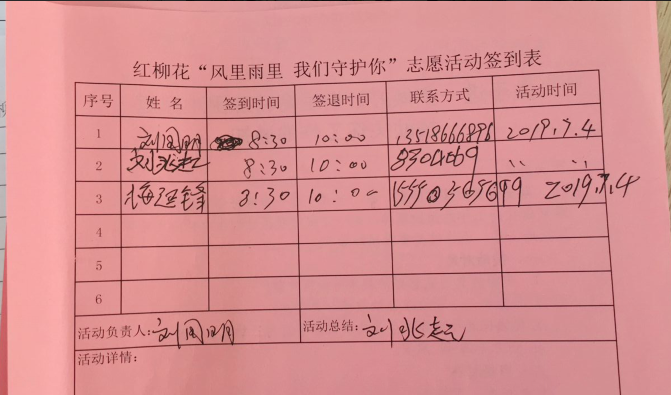 红柳花“风里雨里 我们守护你”志愿活动签到表
序号 姓名 签到时间 签退时间 联系方式 活动时间
1 刘国明 8:30 10:00 2019.7.4
2 8:30 10:00 〃 〃
3 8:30 10:00 2019.7.4
4
5
6
活动负责人:刘国明 活动总结:刘
活动详情: